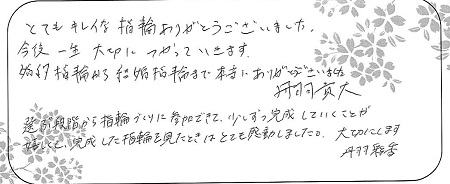 とてもキレイな指輪ありがとうございました。
今後一生大切につかっていきます。
婚約指輪から結婚指輪まで本当にありがとうございました
丹羽貴大
選ぶ段階から指輪づくりに参加できて、少しずつ完成していくことが
嬉しくて、完成した指輪を見たときはとても感動しました。大切にします
丹羽